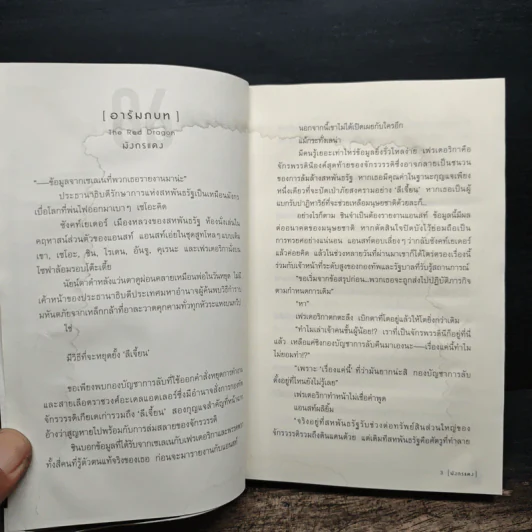 [ อารัมภบท ]
The Red Dragon
มังกรแดง
"—ข้อมูลจากเซเลนที่พวกเธอรายงานมาน่ะ"
ประธานาธิบดีรักษาการแห่งสหพันธรัฐเป็นเหมือนมังกร
เบื่อโลกที่พ่นไฟออกมาเบาๆ เซโอะคิด
ซังค์ทเยเดอร์ เมืองหลวงของสหพันธรัฐ ห้องนั่งเล่นใน
คฤหาสน์ส่วนตัวของแอนสท์ แอนสท์เอ่ยในชุดสูทไหลๆแบบเดิม
เซโอะ, ชิน, ไรเดน, อันจู, คุเรนะ และเฟรเดริกาฉ้อน
โซฟาล้อมรอบโต๊ะเตี้ย
นัยน์ตาดำหลัง
มีวิธีที่จะหยุดยั้ง 'ลีเจี้ยน'
ขอเพียงพบกองบัญชาการลับที่ใช้ออกคำสั่งหยุดการทำงาน
และสายเลือดราชวงศ์อะเดลแอดเลอร์ซึ่งมีอำนาจสั่งการ
จักรวรรดิเกียเดเก่ารวมถึง 'ลีเจี้ยน' สองกุญแจสำคัญที่
อ้างว่าสูญหายไปพร้อมกับการล่มสลายของจักรวรรดิ
ชินบอกข้อมูลที่ได้รับจากเซเลนกับเฟรเดริกาและพวก
ทั้งสี่คนที่รู้ตัวตนแท้จริงของเธอ ก่อนจะมารายงานกับแอนสท์
นอกจากนี้เขาไม่ได้เปิดเผยกับใครอีก
แม้กระทั่งเลนา
มีคนรู้เยอะเท่าไหร่ข้อมูลยิ่งรั่วไหลง่าย เฟรเดริกาคือ
จักรพรรดินีองค์สุดท้ายของจักรวรรดิซึ่งอาจกลายเป็นชนวน
ของการล้มล้างสหพันธรัฐ หากเธอมีคุณค่าในฐานะกุญแจเพียง
หนึ่งเดียวที่จะปิดเป่าภัยสงครามอย่าง 'ลีเจี้ยน' หากเธอเป็นผู้
แบกรับปาฏิหาริย์ที่จะช่วยเหลือมนุษยชาติด้วยละก็..
อย่างไรก็ตาม ชินจำเป็นต้องรายงานแอนสท์ ข้อมูลนี้มีผล
ต่ออนาคตของมนุษยชาติ หากตัดสินใจปิดบังไว้ย่อมถือเป็น
การทรยศอย่างแน่นอน แอนสท์ตอบเลี่ยงๆ ว่ากลับซังค์ทเยเดอร์
แล้วค่อยคิด แล้วในช่วงหลายวันที่ผ่านมาเขาก็ได้ไตร่ตรองเรื่องนี้
ร่วมกับเจ้าหน้าที่ระดับสูงของกองทัพและรัฐบาลที่รับรู้สถานการณ์
"ขอเริ่มจากข้อสรุปก่อน...พวกเธอจะถูกส่งไปปฏิบัติภารกิจ
ตามกำหนดการเดิม"
"หา"
เฟรเดริกาตกตะลึง เบิกตาที่โตอยู่แล้วให้โตยิ่งกว่าเดิม
"ทำไมเล่าเจ้าคนชั้นผู้น้อย!? เราที่เป็นจักรพรรดินีก็อยู่ที่นี่
แล้ว เหลือแค่ชิงกองบัญชาการลับคืนมาเองนะ—เรื่องแค่นี้ทำไม
ไม่ยอมทำ!?"
"เพราะ 'เรื่องแค่นี้' ที่ว่ามันยากน่ะสิ กองบัญชาการลับ
ตั้งอยู่ที่ไหนยังไม่รู้เลย"
เฟรเดริกาทำหน้าไม่เชื่อคำพูด
แอนสท์ผลิยิ้ม
"จริงอยู่ที่สหพันธรัฐรับช่วงต่อทรัพย์สินส่วนใหญ่ของ
จักรวรรดิรวมถึงดินแดนด้วย แต่เดิมทีสหพันธรัฐคือศัตรูที่ทำลาย
3 [มังกรแดง]